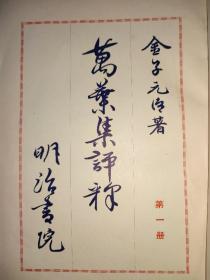 金子元臣著
萬葉集評釋
第一册
明治書院